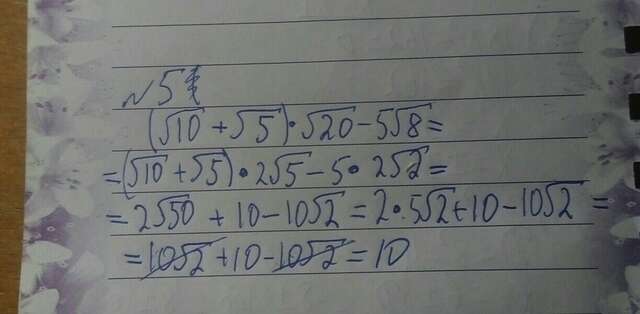 №5
(√10 + √5)•√20 – 5√8 =
= (√10 + √5)•2√5 – 5•2√2 =
= 2√50 + 10 – 10√2 = 2•5√2 + 10 – 10√2 =
= 10√2 + 10 – 10√2 = 10